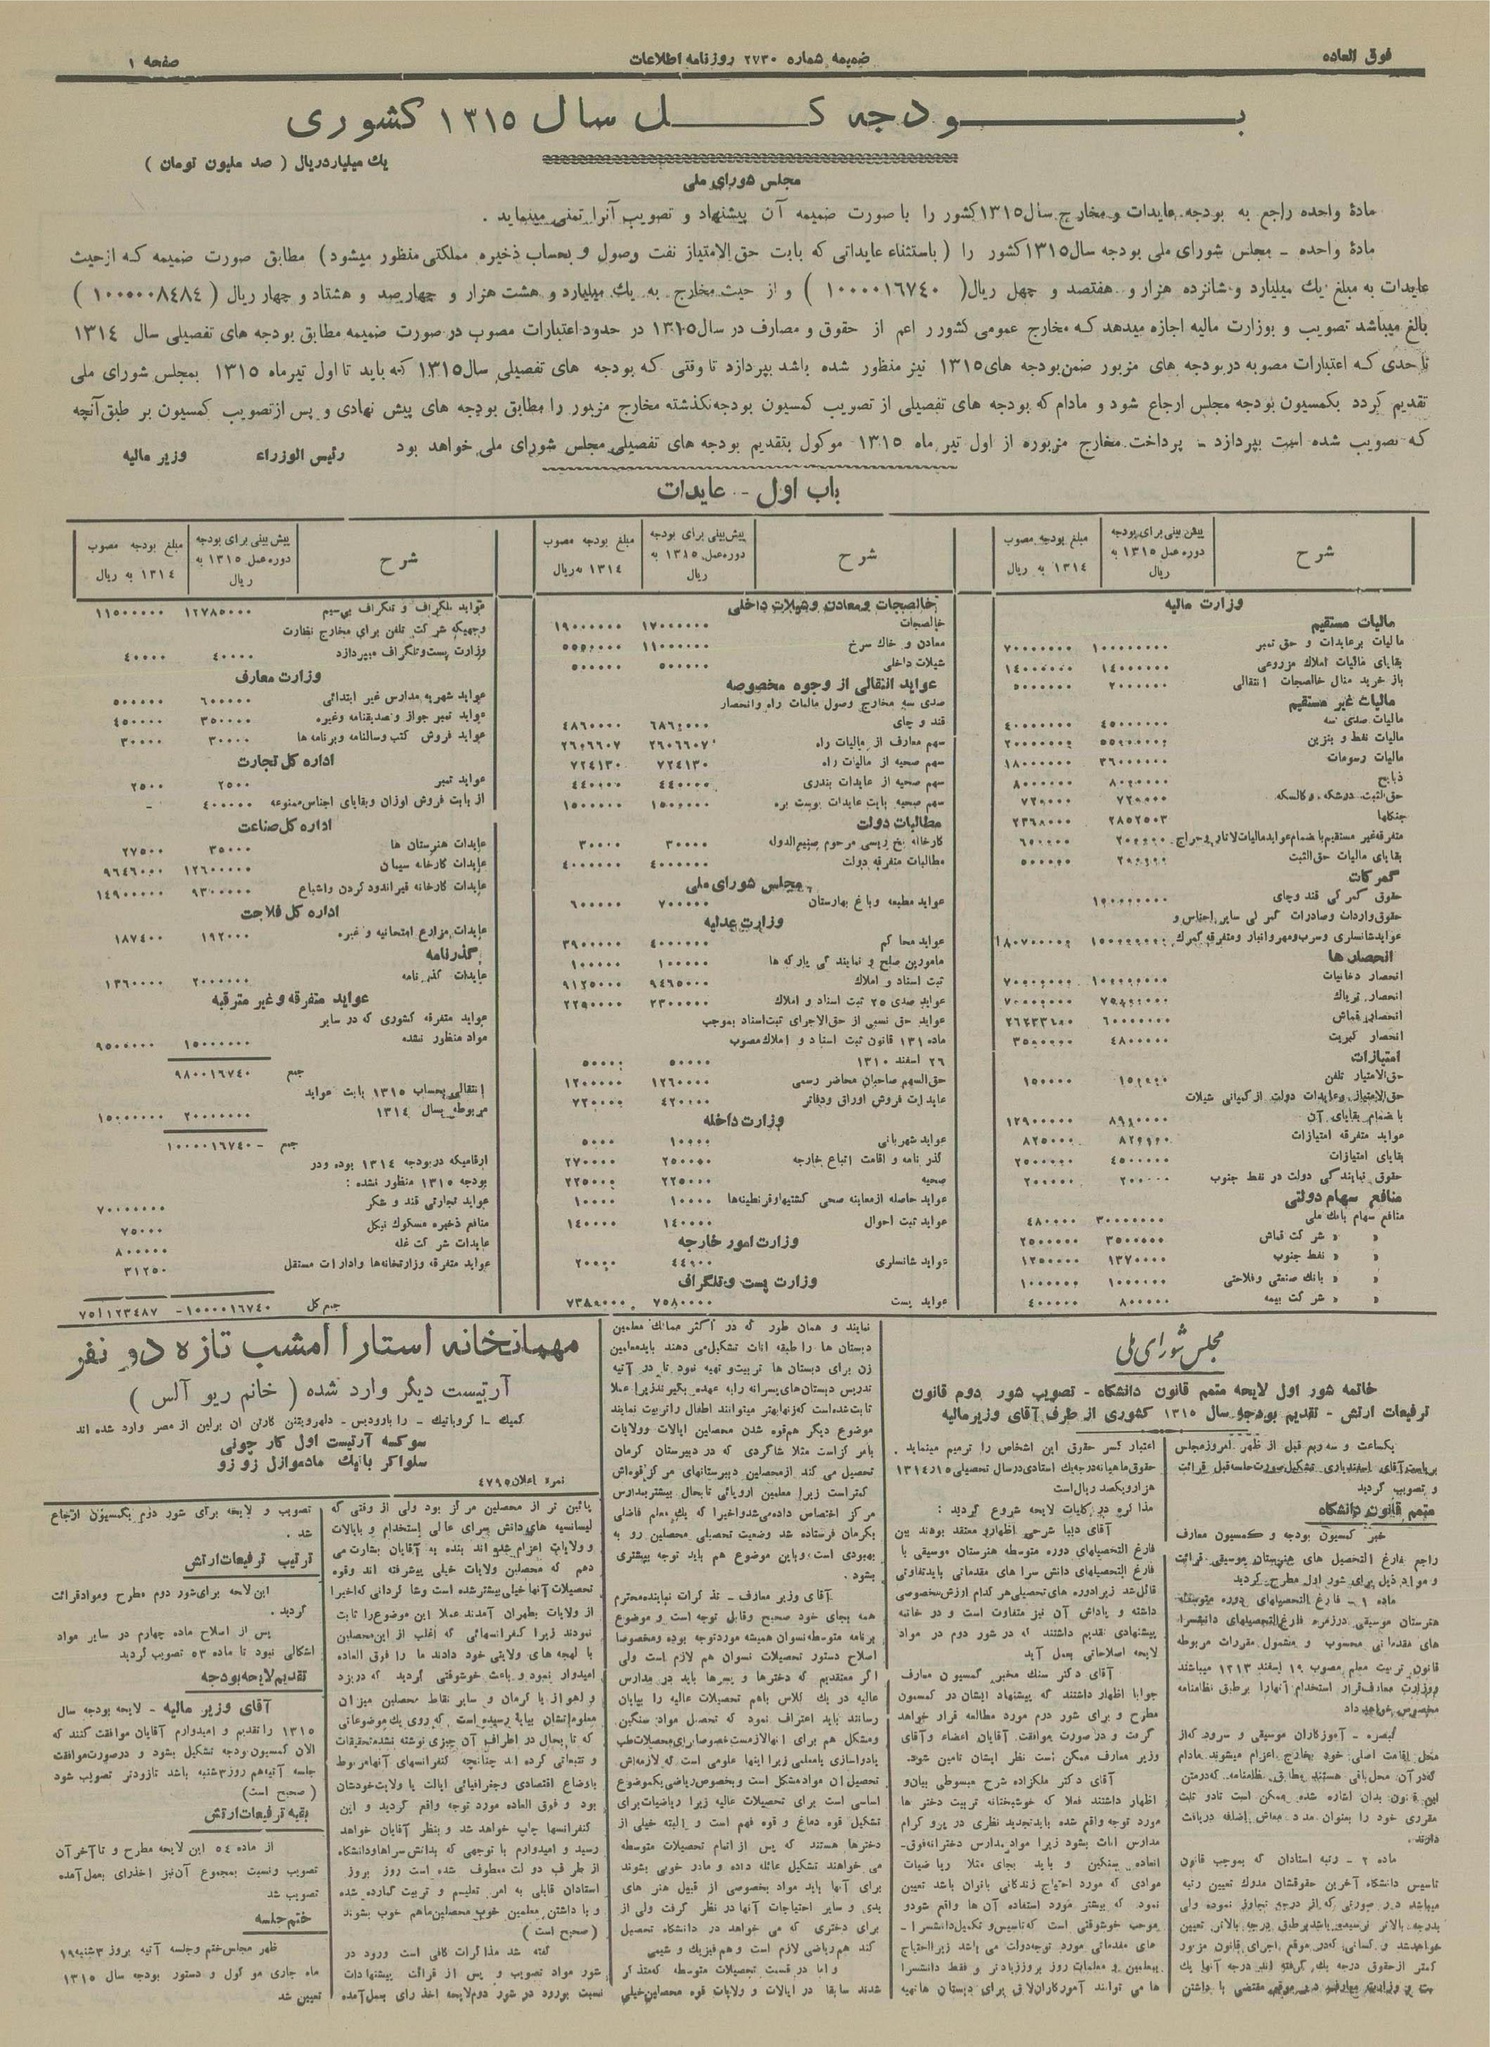 فوق العاده
ضمیمه شماره ۲۷۳۰ روزنامه اطلاعات
صفحه ۱
بودجه کل سال ۱۳۱۵ کشوری
یک میلیارد ریال ( صد ملیون تومان )
مجلس شورای ملی
مادهٔ واحده راجع به بودجه عایدات و مخارج سال ۱۳۱۵ کشور را با صورت ضمیمه آن پیشنهاد و تصویب آنرا تمنی مینماید .
مادهٔ واحده ـ مجلس شورای ملی بودجه سال ۱۳۱۵ کشور را ( باستثناء عایداتی که بابت حق الامتیاز نفت وصول و بحساب ذخیره مملکتی منظور میشود ) مطابق صورت ضمیمه که از حیث
عایدات به مبلغ یک میلیارد و شانزده هزار و هفتصد و چهل ریال ( ۱۰۰۰۰۱۶۷۴۰ ) و از حیث مخارج به یک میلیارد و هشت هزار و چهار صد و هشتاد و چهار ریال ( ۱۰۰۰۰۰۸۴۸۴ )
بالغ میباشد تصویب و بوزارت مالیه اجازه میدهد که مخارج عمومی کشور را اعم از حقوق و مصارف در سال ۱۳۱۵ در حدود اعتبارات مصوب در صورت ضمیمه مطابق بودجه های تفصیلی سال ۱۳۱۴
تا حدی که اعتبارات مصوبه در بودجه های مزبور ضمن بودجه های ۱۳۱۵ نیز منظور شده باشد بپردازد تا وقتی که بودجه های تفصیلی سال ۱۳۱۵ که باید تا اول تیر ماه ۱۳۱۵ بمجلس شورای ملی
تقدیم گردد بکمسیون بودجه مجلس ارجاع شود و مادام که بودجه های تفصیلی از تصویب کمسیون بودجه نگذشته مخارج مزبور را مطابق بودجه های پیش نهادی و پس از تصویب کمسیون بر طبق آنچه
که تصویب شده است بپردازد ـ پرداخت مخارج مزبوره از اول تیر ماه ۱۳۱۵ موکول بتقدیم بودجه های تفصیلی مجلس شورای ملی خواهد بود رئیس الوزراء وزیر مالیه
باب اول ـ عایدات
شرح
پیش بینی برای بودجه دوره عمل ۱۳۱۵ به ریال
مبلغ بودجه مصوب ۱۳۱۴ به ریال
وزارت مالیه
مالیات مستقیم
مالیات بر عایدات و حق تمبر ۱۰۰۰۰۰۰۰۰ ۷۰۰۰۰۰۰۰
بقایای مالیات املاک مزروعی ۱۴۰۰۰۰۰۰ ۱۴۰۰۰۰۰۰
باز خرید منال خالصجات انتقالی ۲۰۰۰۰۰۰ ۵۰۰۰۰۰۰
مالیات غیر مستقیم
مالیات صدی سه ۴۵۰۰۰۰۰۰ ۴۰۰۰۰۰۰۰
مالیات نفط و بنزین
مالیات رسومات ۳۶۰۰۰۰۰۰ ۱۸۰۰۰۰۰۰
ذبایح ۸۰۰۰۰۰۰ ۸۰۰۰۰۰۰
حق الثبت درشکه و کالسکه ۷۲۰۰۰۰ ۷۲۰۰۰۰
جنگلها ۲۸۵۲۵۰۳ ۲۳۶۸۰۰۰
بقایای مالیات حق الثبت
گمرکات
حقوق گمرکی قند و چای
حقوق واردات و صادرات گمرکی سایر اجناس و
انحصار ها
انحصار دخانیات
انحصار تریاک
انحصار قماش
انحصار کبریت
امتیازات
حق الامتیاز تلفن ۱۵۰۰۰۰ ۱۵۰۰۰۰
حق الامتیاز و عایدات دولت از کمپانی شیلات
با ضمام بقایای آن
عواید متفرقه امتیازات
بقایای امتیازات
حقوق نمایندگی دولت در نفط جنوب ۲۰۰۰۰۰ ۲۰۰۰۰۰
منافع سهام دولتی
منافع سهام بانک ملی
« « شرکت قماش ۳۵۰۰۰۰۰ ۲۵۰۰۰۰۰
« « نفط جنوب ۱۳۷۰۰۰۰ ۱۲۵۰۰۰۰
« « بانک صنعتی و فلاحتی ۱۰۰۰۰۰۰ ۱۰۰۰۰۰۰
« « شرکت بیمه ۸۰۰۰۰۰ ۴۰۰۰۰۰
شرح
پیش بینی برای بودجه دوره عمل ۱۳۱۵ به ریال
مبلغ بودجه مصوب ۱۳۱۴ به ریال
خالصجات و معادن و شیلات داخلی
خالصجات ۱۷۰۰۰۰۰۰ ۱۹۰۰۰۰۰۰
معادن و خاک سرخ ۱۱۰۰۰۰۰۰
شیلات داخلی ۵۰۰۰۰۰ ۵۰۰۰۰۰
عواید انتقالی از وجوه مخصوصه
صدی سه مخارج وصول مالیات راه و انحصار
قند و چای
سهم معارف از مالیات راه ۲۶۰۶۶۰۷ ۲۶۰۶۶۰۷
سهم صحیه از مالیات راه ۷۲۴۱۳۰ ۷۲۴۱۳۰
سهم صحیه از عایدات بندری ۴۴۰۰۰۰ ۴۴۰۰۰۰
سهم صحیه بابت عایدات پوست بره ۱۵۰۰۰۰۰ ۱۵۰۰۰۰۰
مطالبات دولت
کارخانه نخ ریسی مرحوم صنیع الدوله ۳۰۰۰۰ ۳۰۰۰۰
مطالبات متفرقه دولت ۴۰۰۰۰۰۰ ۴۰۰۰۰۰۰
مجلس شورای ملی
عواید مطبعه و باغ بهارستان ۷۰۰۰۰۰ ۶۰۰۰۰۰
وزارت عدلیه
عواید محاکم ۴۰۰۰۰۰۰ ۳۹۰۰۰۰۰
مامورین صلح و نمایندگی پارکه ها ۱۰۰۰۰۰ ۱۰۰۰۰۰
ثبت اسناد و املاک ۹۴۶۵۰۰۰ ۹۱۲۵۰۰۰
عواید صدی ۲۵ ثبت اسناد و املاک ۲۳۰۰۰۰۰ ۲۲۹۰۰۰۰
عواید حق نسبی از حق الاجرای ثبت اسناد بموجب
ماده ۱۳۱ قانون ثبت اسناد و املاک مصوب
۲۶ اسفند ۱۳۱۰ ۵۰۰۰۰ ۵۰۰۰۰
حق السهم صاحبان محاضر رسمی ۱۲۶۰۰۰۰ ۱۲۰۰۰۰۰
عایدات فروش اوراق و دفاتر ۴۲۰۰۰۰ ۷۲۰۰۰۰
وزارت داخله
عواید شهربانی ۱۰۰۰۰ ۵۰۰۰
گذر نامه و اقامت اتباع خارجه ۲۵۰۰۰۰ ۲۷۰۰۰۰
صحیه ۲۲۵۰۰۰ ۲۲۵۰۰۰
عواید حاصله از معاینه صحی کشتیها و قرنطینه ها ۱۰۰۰۰ ۱۰۰۰۰
عواید ثبت احوال ۱۴۰۰۰۰ ۱۴۰۰۰۰
وزارت امور خارجه
عواید شانسلری
وزارت پست و تلگراف
عواید پست ۷۵۸۰۰۰۰
شرح
پیش بینی برای بودجه دوره عمل ۱۳۱۵ به ریال
مبلغ بودجه مصوب ۱۳۱۴ به ریال
عواید تلگراف و تلگراف بی سیم ۱۲۷۸۵۰۰۰ ۱۱۵۰۰۰۰۰
وجهیکه شرکت تلفن برای مخارج نظارت
وزارت پست و تلگراف میپردازد ۴۰۰۰۰ ۴۰۰۰۰
وزارت معارف
عواید شهریه مدارس غیر ابتدائی ۶۰۰۰۰۰ ۵۰۰۰۰۰
عواید تمبر جواز و تصدیقنامه و غیره ۳۵۰۰۰۰ ۴۵۰۰۰۰
عواید فروش کتب و سالنامه و برنامه ها ۳۰۰۰۰ ۳۰۰۰۰
اداره کل تجارت
عواید تمبر ۲۵۰۰ ۲۵۰۰
از بابت فروش اوزان و بقایای اجناس ممنوعه ۴۰۰۰۰۰ ـ
اداره کل صناعت
عایدات هنرستان ها ۳۵۰۰۰ ۲۷۵۰۰
عایدات کارخانه سیمان ۱۲۶۰۰۰۰۰ ۹۶۴۶۰۰۰
عایدات کارخانه قیر اندود کردن و اشباع ۹۳۰۰۰۰۰ ۱۴۹۰۰۰۰۰
اداره کل فلاحت
عایدات مزارع امتحانیه و غیره ۱۹۲۰۰۰ ۱۸۷۴۰۰
گذرنامه
عایدات گذر نامه ۲۰۰۰۰۰۰ ۱۳۶۰۰۰۰
عواید متفرقه و غیر مترقبه
عواید متفرقه کشوری که در سایر
مواد منظور نشده ۱۵۰۰۰۰۰۰ ۹۵۰۰۰۰۰
جمع ۹۸۰۰۱۶۷۴۰
انتقالی بحساب ۱۳۱۵ بابت عواید
مربوطه بسال ۱۳۱۴ ۲۰۰۰۰۰۰۰ ۱۵۰۰۰۰۰۰
جمع ـ ۱۰۰۰۰۱۶۷۴۰
ارقامیکه در بودجه ۱۳۱۴ بوده و در
بودجه ۱۳۱۵ منظور نشده :
عواید تجارتی قند و شکر ۷۰۰۰۰۰۰۰
منافع ذخیره مسکوک نیکل ۷۵۰۰۰
عایدات شرکت غله ۸۰۰۰۰۰
عواید متفرقه وزارتخانه ها و ادارات مستقل ۳۱۲۵۰
جمع کل ۱۰۰۰۰۱۶۷۴۰ ـ ۷۵۱۱۲۳۴۸۷
مجلس شورای ملی
خاتمه شور اول لایحه متمم قانون دانشگاه ـ تصویب شور دوم قانون
ترفیعات ارتش ـ تقدیم بودجه سال ۱۳۱۵ کشوری از طرف آقای وزیر مالیه
یکساعت و سه ربع قبل از ظهر امروز مجلس
بریاست آقای اسفندیاری تشکیل صورت جلسه قبل قرائت
و تصویب گردید
متمم قانون دانشگاه
خبر کمسیون بودجه و کمسیون معارف
راجع فارغ التحصیل های هنرستان موسیقی قرائت
و مواد ذیل برای شور اول مطرح گردید
ماده ۱ ـ فارغ التحصیلهای دوره متوسطه
هنرستان موسیقی در زمره فارغ التحصیلهای دانشسرا
های مقدماتی محسوب و مشمول مقررات مربوطه
قانون تربیت معلم مصوب ۱۹ اسفند ۱۳۱۲ میباشند
و وزارت معارف قرار استخدام آنها را بر طبق نظامنامه
مخصوص خواهد داد
تبصره ـ آموزگاران موسیقی و سرود که از
محل اقامت اصلی خود بخارج اعزام میشوند مادام
که در آن محل باقی هستند مطابق نظامنامه که در متن
این قانون بدان اشاره شده ممکن است تا دو ثلث
مقرری خود را بعنوان مدد معاش اضافه دریافت
دارند.
ماده ۲ ـ رتبه استادان که بموجب قانون
تاسیس دانشگاه آخرین حقوقشان مدرک تعیین رتبه
میباشد در صورتی که از درجه تجاوز نموده ولی
بدرجه بالاتر نرسیده باشد بر طبق درجه بالاتر تعیین
خواهد شد و کسانی که در موقع اجرای قانون مزبور
کمتر از حقوق درجه یک گرفته اند درجه آنها یک
است و وزارت معارف در موقع مقتضی با داشتن
اعتبار کسر حقوق این اشخاص را ترمیم مینماید .
حقوق ماهیانه درجه یک استادی در سال تحصیلی ۱۵ر۱۳۱۴
هزار و یکصد ریال است
مذاکره در کلیات لایحه شروع گردید :
آقای دیبا شرحی اظهار و معتقد بودند بین
فارغ التحصیلهای دوره متوسطه هنرستان موسیقی با
فارغ التحصیلهای دانش سرا های مقدماتی باید تفاوتی
قائل شد زیرا دوره های تحصیلی هر کدام ارزش مخصوصی
داشته و پاداش آن نیز متفاوت است و در خاتمه
پیشنهادی تقدیم داشتند که در شور دوم در مواد
لایحه اصلاحاتی بعمل آید
آقای دکتر سنگ مخبر کمسیون معارف
جوابا اظهار داشتند که پیشنهاد ایشان در کمسیون
مطرح و برای شور دوم مورد مطالعه قرار خواهد
گرفت و در صورت موافقت آقایان اعضاء و آقای
وزیر معارف ممکن است نظر ایشان تامین شود.
آقای دکتر ملکزاده شرح مبسوطی بیان و
اظهار داشتند فعلا که خوشبختانه تربیت دختر ها
مورد توجه واقع شده باید تجدید نظری در پروگرام
مدارس اناث بشود زیرا مواد مدارس دخترانه فوق
العاده سنگین و باید بجای مثلا ریاضیات
موادی که مورد احتیاج زندگانی بانوان باشد تعیین
نمود که بیشتر مورد استفاده آن ها واقع شود و
موجب خوشوقتی است که تاسیس و تکمیل دانشسرا ـ
های مقدماتی مورد توجه دولت می باشد زیرا احتیاج
بمعلمین و معلمات روز بروز زیادتر و فقط دانشسرا
ها می توانند آموزگاران لایق برای دبستان ها تهیه
نمایند و همان طور که در اکثر ممالک معلمین
دبستان ها را طبقه اناث تشکیل می دهند باید معلمین
زن برای دبستان ها تربیت و تهیه نمود تا در آتیه
تدریس دبستان های پسرانه را به عهده بگیرند زیرا عملا
ثابت شده است که زنها بهتر میتوانند اطفال را تربیت نمایند
موضوع دیگر هم قوه شدن محصلین ایالات و ولایات
با مرکز است مثلا شاگردی که در دبیرستان کرمان
تحصیل می کند از محصلین دبیرستانهای مرکز قوه اش
کمتر است زیرا معلمین اروپائی تا بحال بیشتر بمدارس
مرکز اختصاص داده می شد و اخیرا که یک معلم فاضلی
بکرمان فرستاده شد وضعیت تحصیلی محصلین رو به
بهبودی است و باین موضوع هم باید توجه بیشتری
بشود .
آقای وزیر معارف ـ تذکرات نماینده محترم
همه بجای خود صحیح و قابل توجه است و موضوع
برنامه متوسطه نسوان همیشه مورد توجه بوده و مخصوصا
اصلاح دستور تحصیلات نسوان هم لازم است ولی
اگر معتقدیم که دخترها و پسرها باید در مدارس
عالیه در یک کلاس باهم تحصیلات عالیه را بپایان
رسانند باید اعتراف نمود که تحصیل مواد سنگین
و مشکل هم برای آنها لازم است خصوصا برای محصلات طب
یا دواسازی یا معلمی زیرا اینها علومی است که لازمه اش
تحصیل ان مواد مشکل است و بخصوص ریاضی یک موضوع
اساسی است برای تحصیلات عالیه زیرا ریاضیات برای
تشکیل قوه دماغ و قوه فهم است و البته خیلی از
دخترها هستند که پس از اتمام تحصیلات متوسطه
می خواهند تشکیل عائله داده و مادر خوبی بشوند
برای آنها باید مواد بخصوصی از قبیل هنر های
یدی و سایر احتیاجات آنها در نظر گرفت ولی از
برای دختری که می خواهد در دانشگاه تحصیل
کند هم ریاضی لازم است و هم فیزیک و شیمی
و اما در قسمت تحصیلات متوسطه که متذکر
شدند سابقا در ایالات و ولایات قوه محصلین خیلی
مهمانخانه آستارا امشب تازه دو نفر
آرتیست دیگر وارد شده ( خانم ریو آلس )
کمیک ـ اکروباتیک ـ را پارودیس ـ دلهرویتتن کارتن ان برلین از مصر وارد شده اند
سوکسه آرتیست اول کار چونی
سلواکر باتیک مادموازل زو زو
نمره اعلان ۴۷۹۵
پائین تر از محصلین مرکز بود ولی از وقتی که
لیسانسیه های دانش سرای عالی استخدام و بایالات
و ولایات اعزام شده اند بنده به آقایان بشارت می
دهم که محصلین ولایات خیلی پیشرفته اند و قوه
تحصیلات آنها خیلی بیشتر شده است و شاگردانی که اخیرا
از ولایات بطهران آمدند عملا این موضوع را ثابت
نمودند زیرا کنفرانسهائی که اغلب از این محصلین
با لهجه های ولایتی خود دادند ما را فوق العاده
امیدوار نمود و باعث خوشوقتی گردید که در یزد
و اهواز یا کرمان و سایر نقاط محصلین میزان
معلوماتشان بپایهٔ رسیده است که روی یک موضوعاتی
که تا بحال در اطراف آن چیزی نوشته نشده تحقیقات
و تتبعاتی کرده اند چنانچه کنفرانسهای آنها مربوط
باوضاع اقتصادی و جغرافیائی ایالت یا ولایت خودشان
بود و فوق العاده مورد توجه واقع گردید و این
کنفرانسها چاپ خواهد شد و بنظر آقایان خواهد
رسید و امیدوارم با توجهی که بدانش سراها و دانشگاه
از طرف دولت معطوف شده است روز بروز
استادان قابلی به امر تعلیم و تربیت گمارده شده
و با داشتن معلمین خوب محصلین ما هم خوب بشوند
( صحیح است )
گفته شد مذاکرات کافی است ورود در
شور مواد تصویب و پس از قرائت پیشنهادات
نسبت بورود در شور دوم لایحه اخذ رای بعمل آمده
تصویب و لایحه برای شور دوم بکمسیون ارجاع
شد .
ترتیب ترفیعات ارتش
این لایحه برای شور دوم مطرح و مواد قرائت
گردید .
پس از اصلاح ماده چهارم در سایر مواد
اشکالی نبود تا ماده ۵۳ تصویب گردید
تقدیم لایحه بودجه
آقای وزیر مالیه ـ لایحه بودجه سال
۱۳۱۵ را تقدیم و امیدوارم آقایان موافقت کنند که
الان کمسیون بودجه تشکیل بشود و در صورت موافقت
جلسه آتیه هم روز ۳ شنبه باشد تا زودتر تصویب شود
( صحیح است )
بقیه ترفیعات ارتش
از ماده ۵۴ این لایحه مطرح و تا آخر آن
تصویب و نسبت بمجموع آن نیز اخذ رای بعمل آمده
تصویب شد
ختم جلسه
ظهر مجلس ختم و جلسه آتیه بروز ۳ شنبه ۱۹
ماه جاری موکول و دستور بودجه سال ۱۳۱۵
تعیین شد